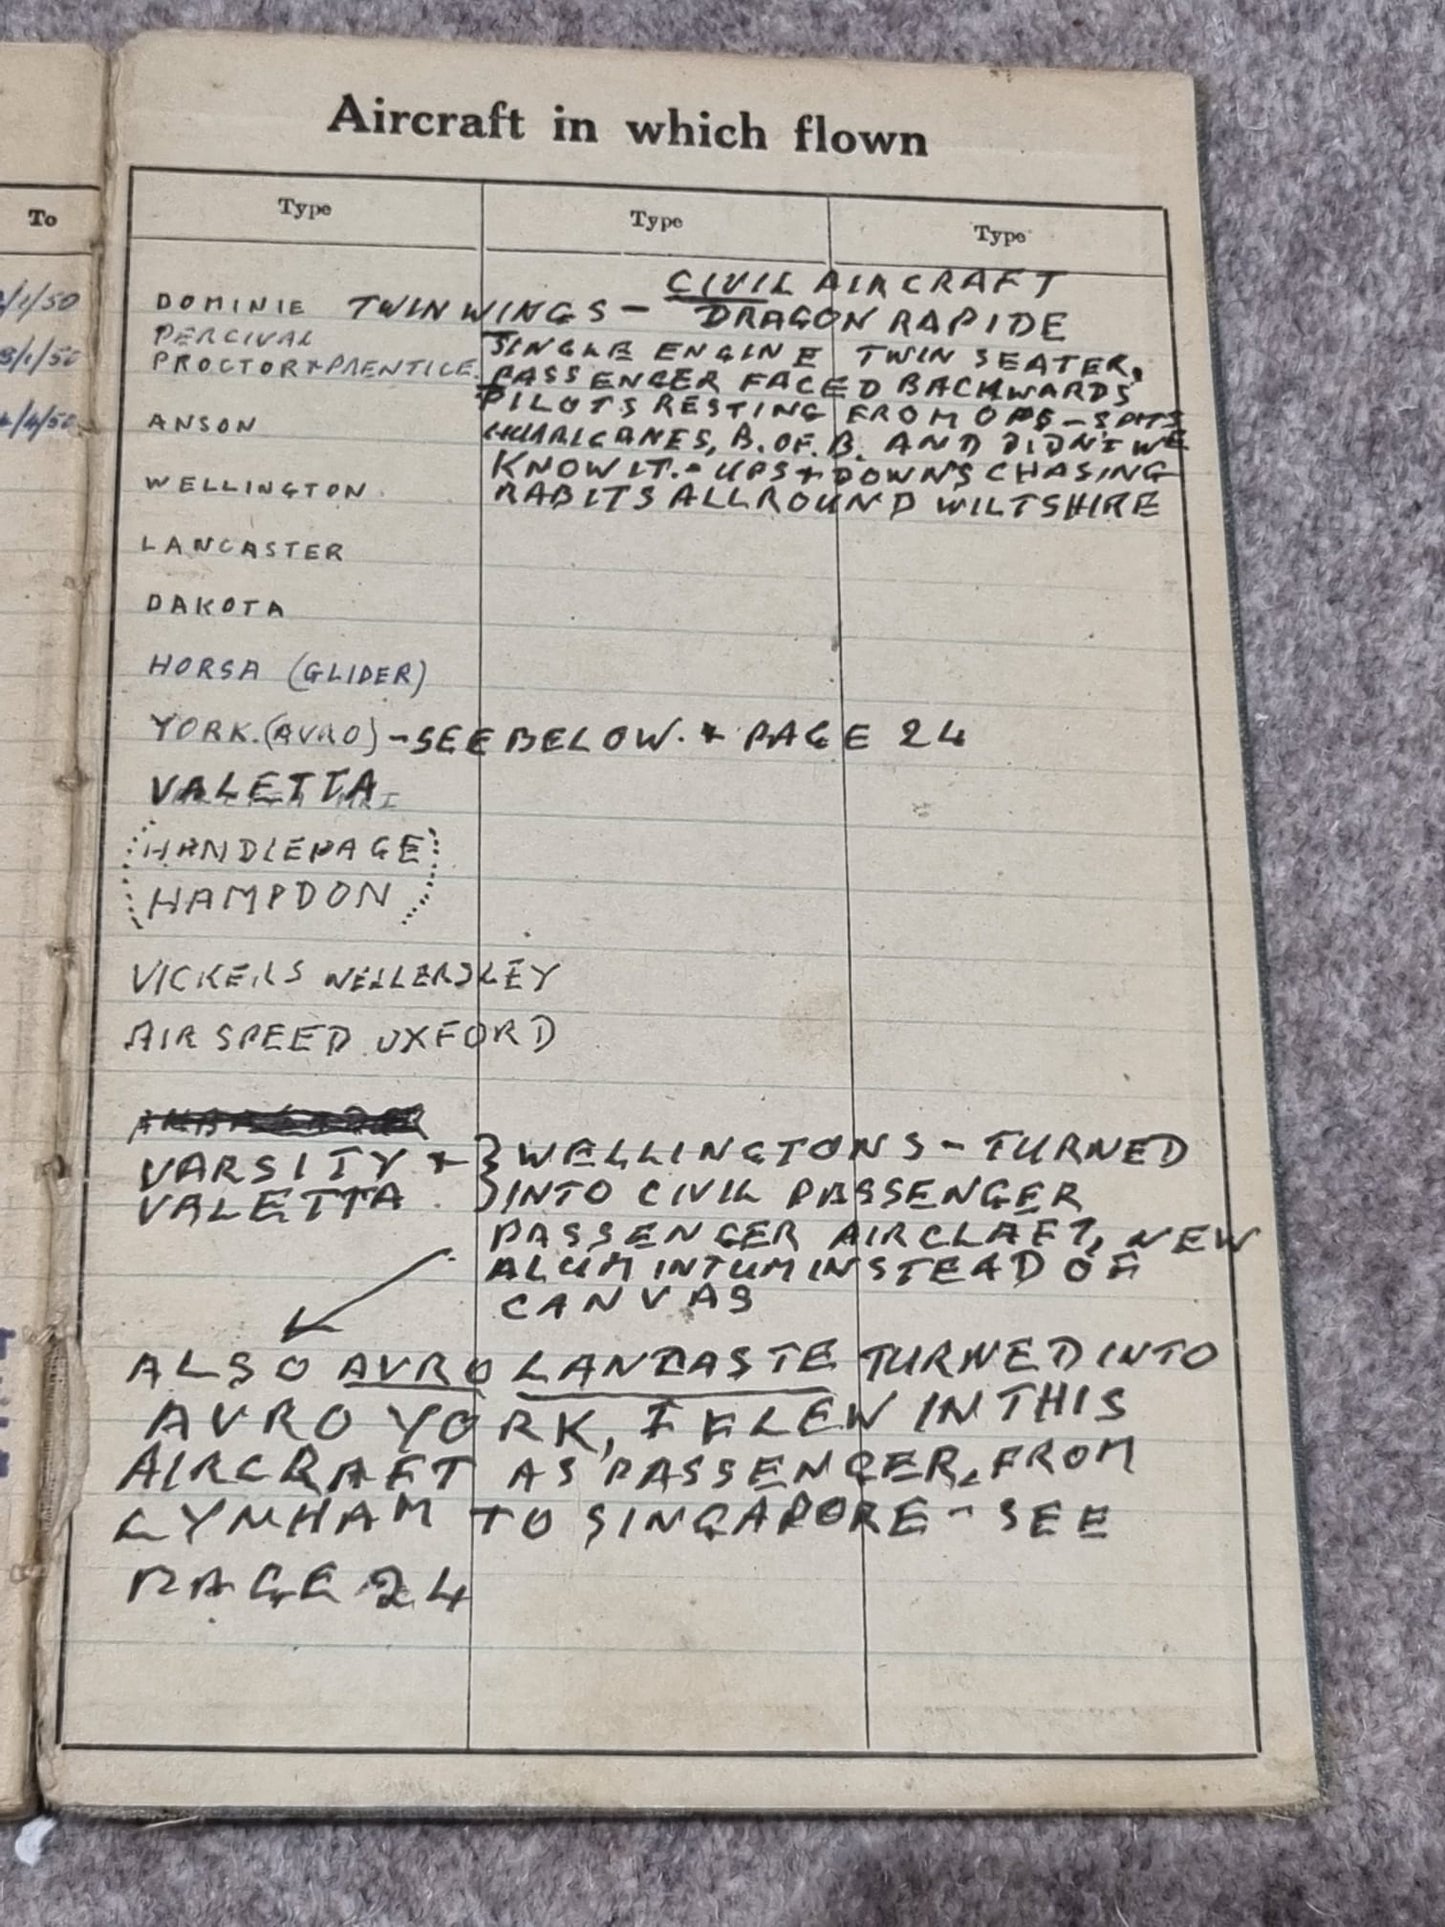 Aircraft in which flown
To
Type Type Type
/1/50
/1/50
/4/50
CIVIL AIRCRAFT
DOMINIE TWIN WINGS - DRAGON RAPIDE
PERCIVAL
PROCTOR + PRENTICE. SINGLE ENGINE TWIN SEATER,
PASSENGER FACED BACKWARDS
PILOTS RESTING FROM OPS - SPITS
ANSON HURRICANES, B. OF. B. AND DIDN'T WE
KNOW IT. - UPS + DOWNS CHASING
WELLINGTON. RABITS ALLROUND WILTSHIRE
LANCASTER
DAKOTA
HORSA (GLIDER)
YORK. (AVRO) - SEE BELOW. + PAGE 24
VALETTA
HANDLEPAGE
HAMPDON
VICKERS WELLERSLEY
AIR SPEED OXFORD
VARSITY + } WELLINGTONS - TURNED
VALETTA. } INTO CIVIL PASSENGER
PASSENGER AIRCLAFT, NEW
ALUMINIUM INSTEAD OF
CANVAS
ALSO AVRO LANCASTE TURNED INTO
AVRO YORK, I FLEW IN THIS
AIRCRAFT AS PASSENGER, FROM
LYNHAM TO SINGAPORE - SEE
PAGE 24